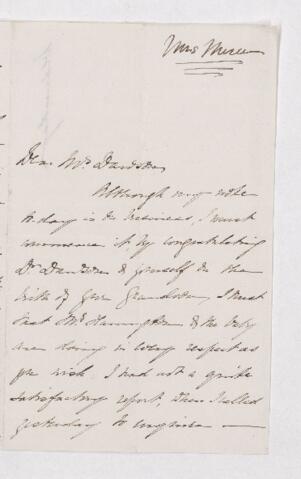 Mrs
Dear Mrs Davidson
Although my note
to day is on business, I must
commence it, by congratulating
Dr Davidson & yourself on the
birth of your Grandson, I trust
that Mrs & the baby
are doing in every respect as
you wish I had not a quite
satisfactory report, when I called
yesterday to enquire —